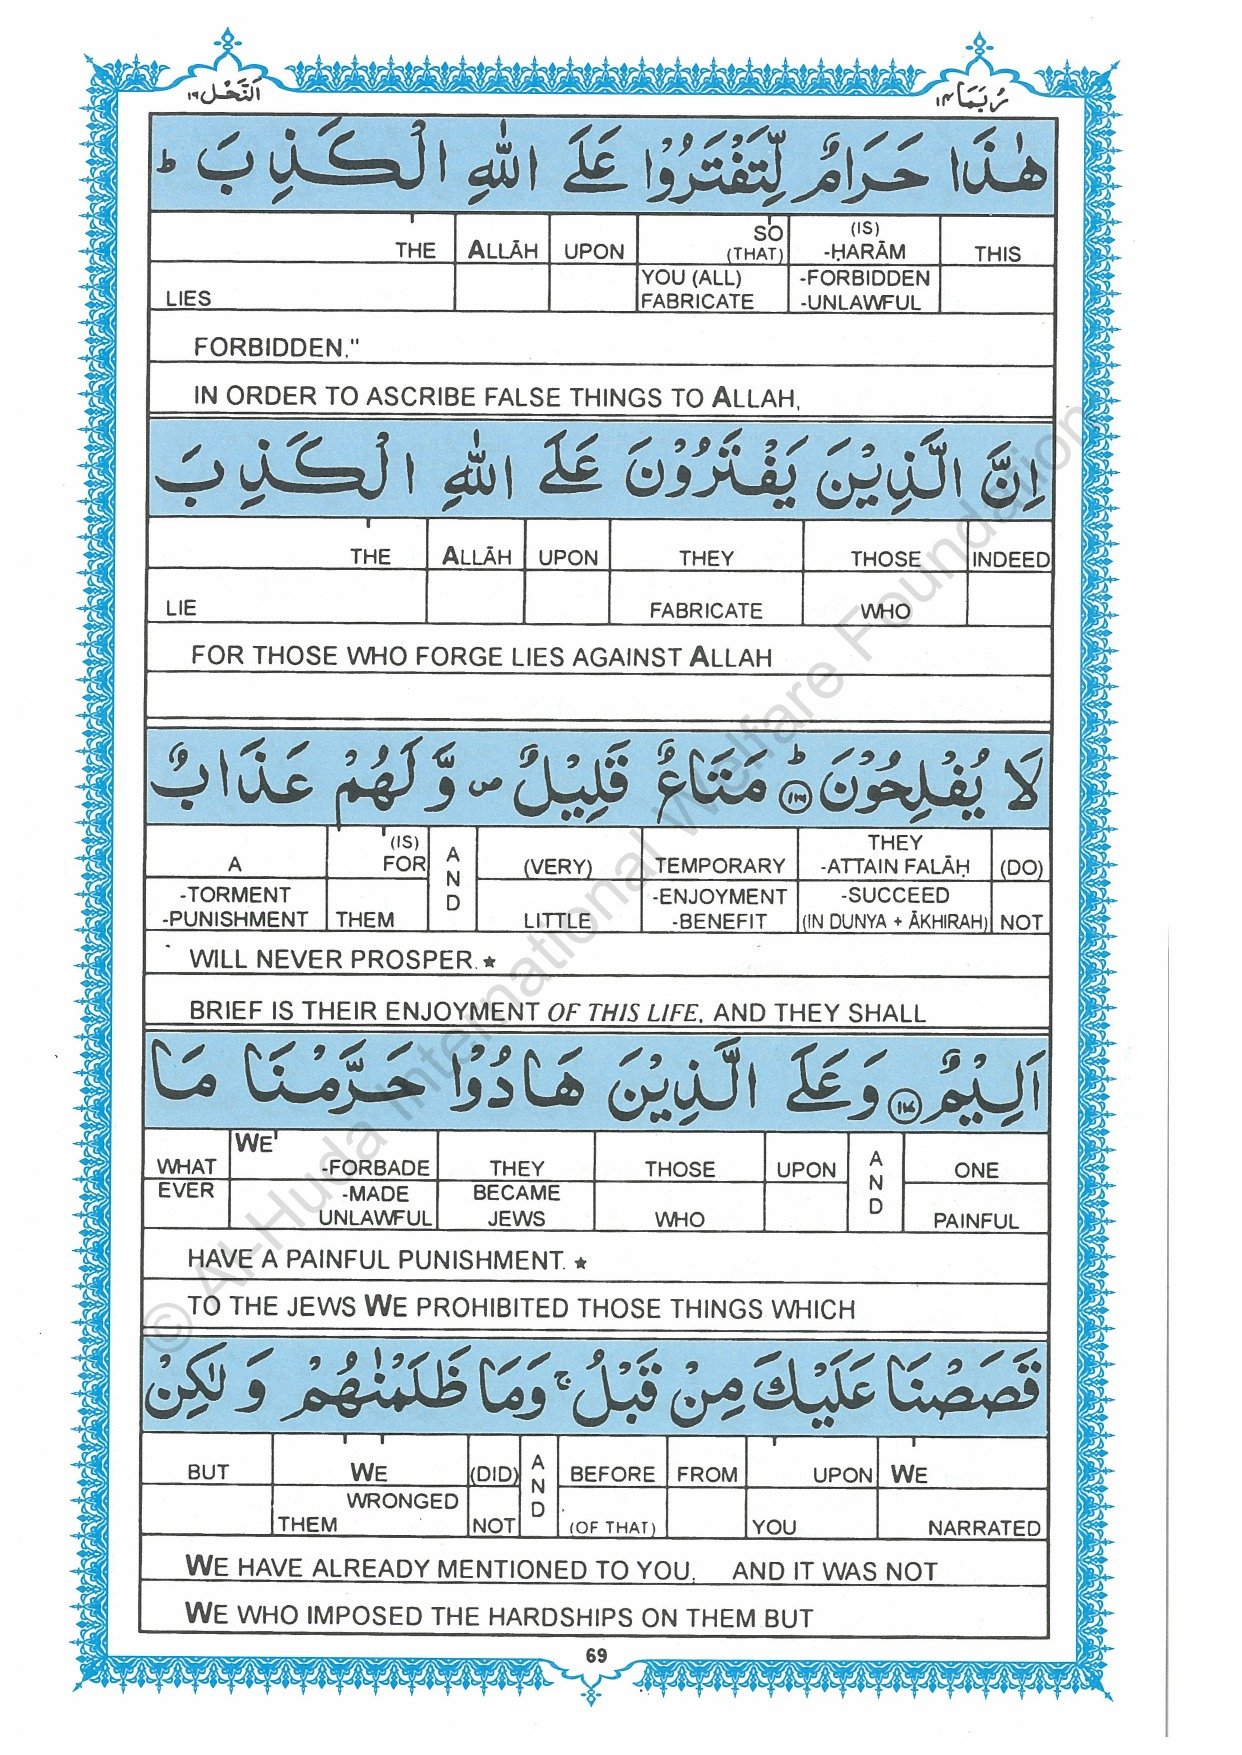 اَلنَّحْل ١٦
رُبَمَا ١٤
هٰذَا حَرَامٌ لِّتَفْتَرُوْا عَلَى اللّٰهِ الْكَذِبَ ط
THE ALLĀH UPON SO (THAT) (IS) -ḤARĀM THIS
LIES YOU (ALL) FABRICATE -FORBIDDEN -UNLAWFUL
FORBIDDEN."
IN ORDER TO ASCRIBE FALSE THINGS TO ALLAH,
اِنَّ الَّذِيْنَ يَفْتَرُوْنَ عَلَى اللّٰهِ الْكَذِبَ
THE ALLĀH UPON THEY THOSE INDEED
LIE FABRICATE WHO
FOR THOSE WHO FORGE LIES AGAINST ALLAH
لَا يُفْلِحُوْنَ ط ١١٦ مَتَاعٌ قَلِيْلٌ ص وَّ لَهُمْ عَذَابٌ
A (IS) FOR AND (VERY) TEMPORARY THEY -ATTAIN FALĀḤ (DO)
-TORMENT -PUNISHMENT THEM LITTLE -ENJOYMENT -BENEFIT -SUCCEED (IN DUNYA + ĀKHIRAH) NOT
WILL NEVER PROSPER. ★
BRIEF IS THEIR ENJOYMENT OF THIS LIFE, AND THEY SHALL
اَلِيْمٌ ١١٧ وَ عَلَى الَّذِيْنَ هَادُوْا حَرَّمْنَا مَا
WHAT WE -FORBADE THEY THOSE UPON AND ONE
EVER -MADE UNLAWFUL BECAME JEWS WHO PAINFUL
HAVE A PAINFUL PUNISHMENT. ★
TO THE JEWS WE PROHIBITED THOSE THINGS WHICH
قَصَصْنَا عَلَيْكَ مِنْ قَبْلُ ج وَمَا ظَلَمْنٰهُمْ وَ لٰكِنْ
BUT WE (DID) AND BEFORE FROM UPON WE
WRONGED THEM NOT (OF THAT) YOU NARRATED
WE HAVE ALREADY MENTIONED TO YOU, AND IT WAS NOT
WE WHO IMPOSED THE HARDSHIPS ON THEM BUT
69
© Al-Huda International Welfare Foundation